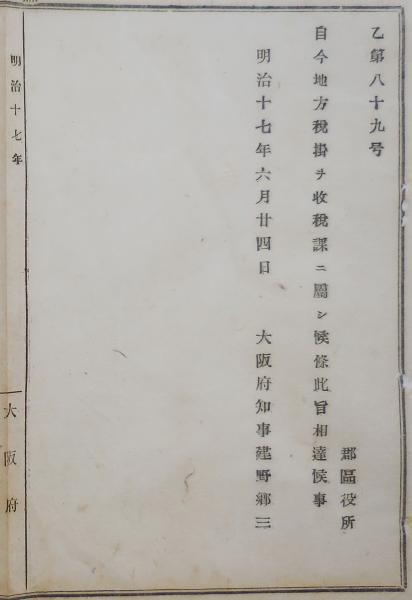 乙第八十九号
郡區役所
自今地方税掛ヲ收税課ニ屬シ候條此旨相達候事
明治十七年六月廿四日　大阪府知事建野郷三
明治十七年
大阪府